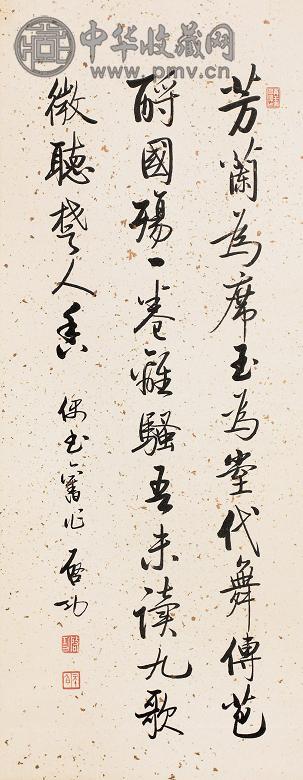 中华收藏网
www.pmv.cn
芳蘭為席玉為堂代舞傳芭
酹國殤一卷離騷吾未讀九歌
微聽楚人香 偶书舊作 启功